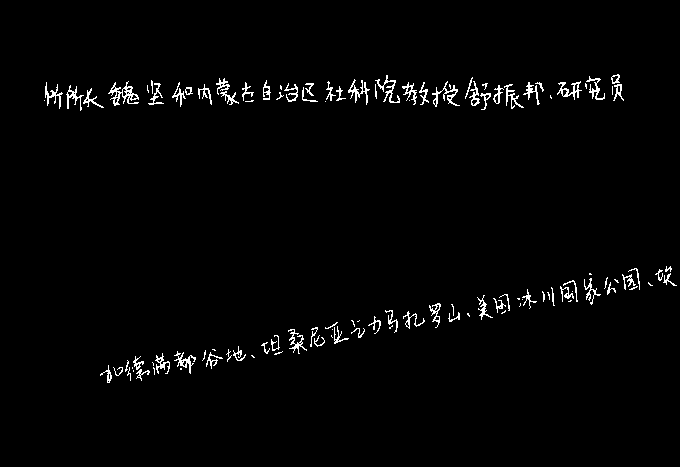 所所长魏坚和内蒙古自治区社科院教授舒振邦、研究员
加德满都谷地、坦桑尼亚乞力马扎罗山、美国冰川国家公园、坎